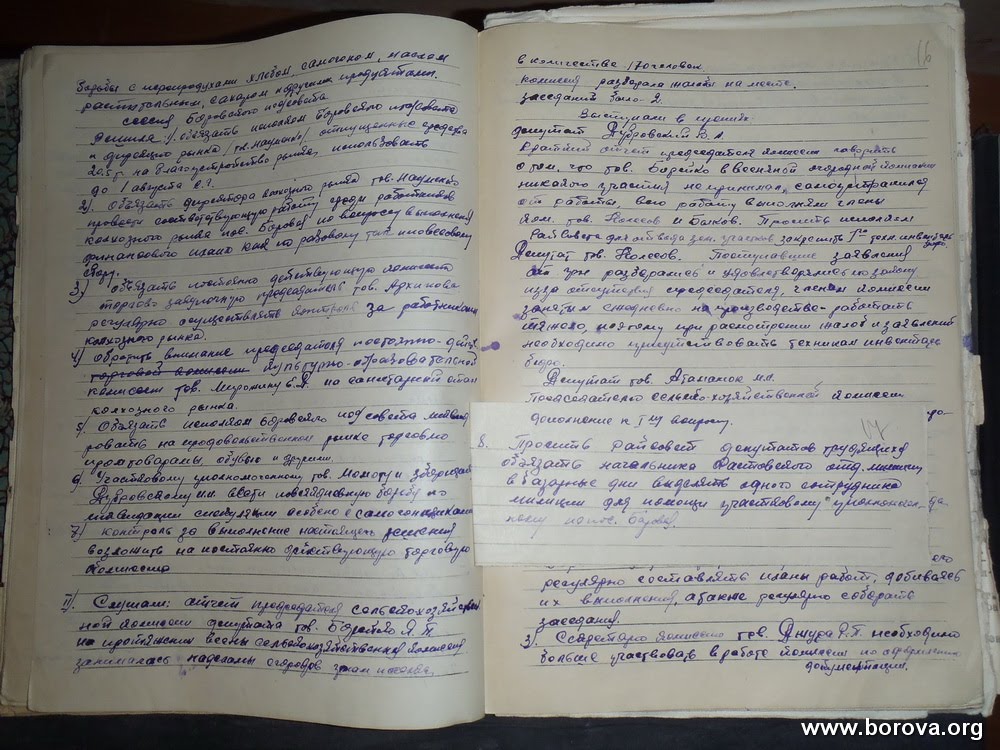 борьбы с перепродухами хлебом, самогоном, маслом
растительным, сахаром и другими продуктами.
сессия Боровского по/совета
Решила: 1) обязать исполком Боровского по/совета
и дирекцию рынка /тов. Науменко/ отпущенные средства
20,5 т на благоустройство рынка, использовать
до 1 августа с.г.
2). Обязать директора колхозного рынка тов. Науменко
провести соответствующую работу среди работников
колхозного рынка пос. Боровая по вопросу выполнения
финансового плана как по разовому так и по весовому
сбору.
3) обязать постоянно действующую комиссию
торгово закупочную председатель тов. Архипова
регулярно осуществлять контроль за работниками
колхозного рынка.
4) Обратить внимание председателя постоянно-дейст.
торговой комиссии культурно-образовательной
комиссии тов. на санитарный стан
колхозного рынка.
5) Обязать исполком Боровского по/совета
на продовольственном рынке торговлю
промтоварами, обувью и другими.
6) Участковому уполномоченному тов.
Дубровскому вести повседневную борьбу по
ликвидации спекуляции особенно с самогонщиками
7) контроль за выполнение настоящего решения
возложить на постоянно действующую торговую
комиссию
II). Слушали: отчет председателя сельскохозяйствен
ной комиссии депутата тов. Борейко Я. П.
на протяжении весны сельскохозяйственная комиссия
занималась наделами огородов
16
в количестве 170 человек.
комиссия разбирала жалобы на месте.
заседаний было 2.
Выступали в прениях
депутат Дубровский В.А.
Краткий отчет председателя комиссии говорить
о том, что тов. Борейко в весенней огородной кампании
никакого участия не принимал, самоустранился
от работы, всю работу выполняли члены
ком. тов. Колесов и Быков. Просить исполком
Райсовета для отвода зем. участков закрепить техн.
Депутат тов. Колесов. Поступившие заявления
от гр-н разбирались и удовлетворялись по закону
из за отсутствия председателя. членам комиссии
занятым ежедневно на производстве - работать
тяжело, поэтому при рассмотрении жалоб и заявлений
необходимо присутствовать техникам инвентарь
бюро.
Депутат тов. Атаманюк
Председателю сельско-хозяйственной комиссии
17
дополнение к I му вопросу.
8. Просить Райсовет депутатов трудящихся
обязать начальника Фастовского отд. милиции
в базарные дни выделять одного сотрудника
милиции для помощи участковому уполномочен-
ному по пос. Боровая.
регулярно составлять планы работ, добиваясь
их выполнения, а также регулярно собирать
заседания.
3). Секретарю комиссии тов. Джура Ф.П. необходимо
больше участвовать в работе комиссии по оформлению
документации.
www.borova.org